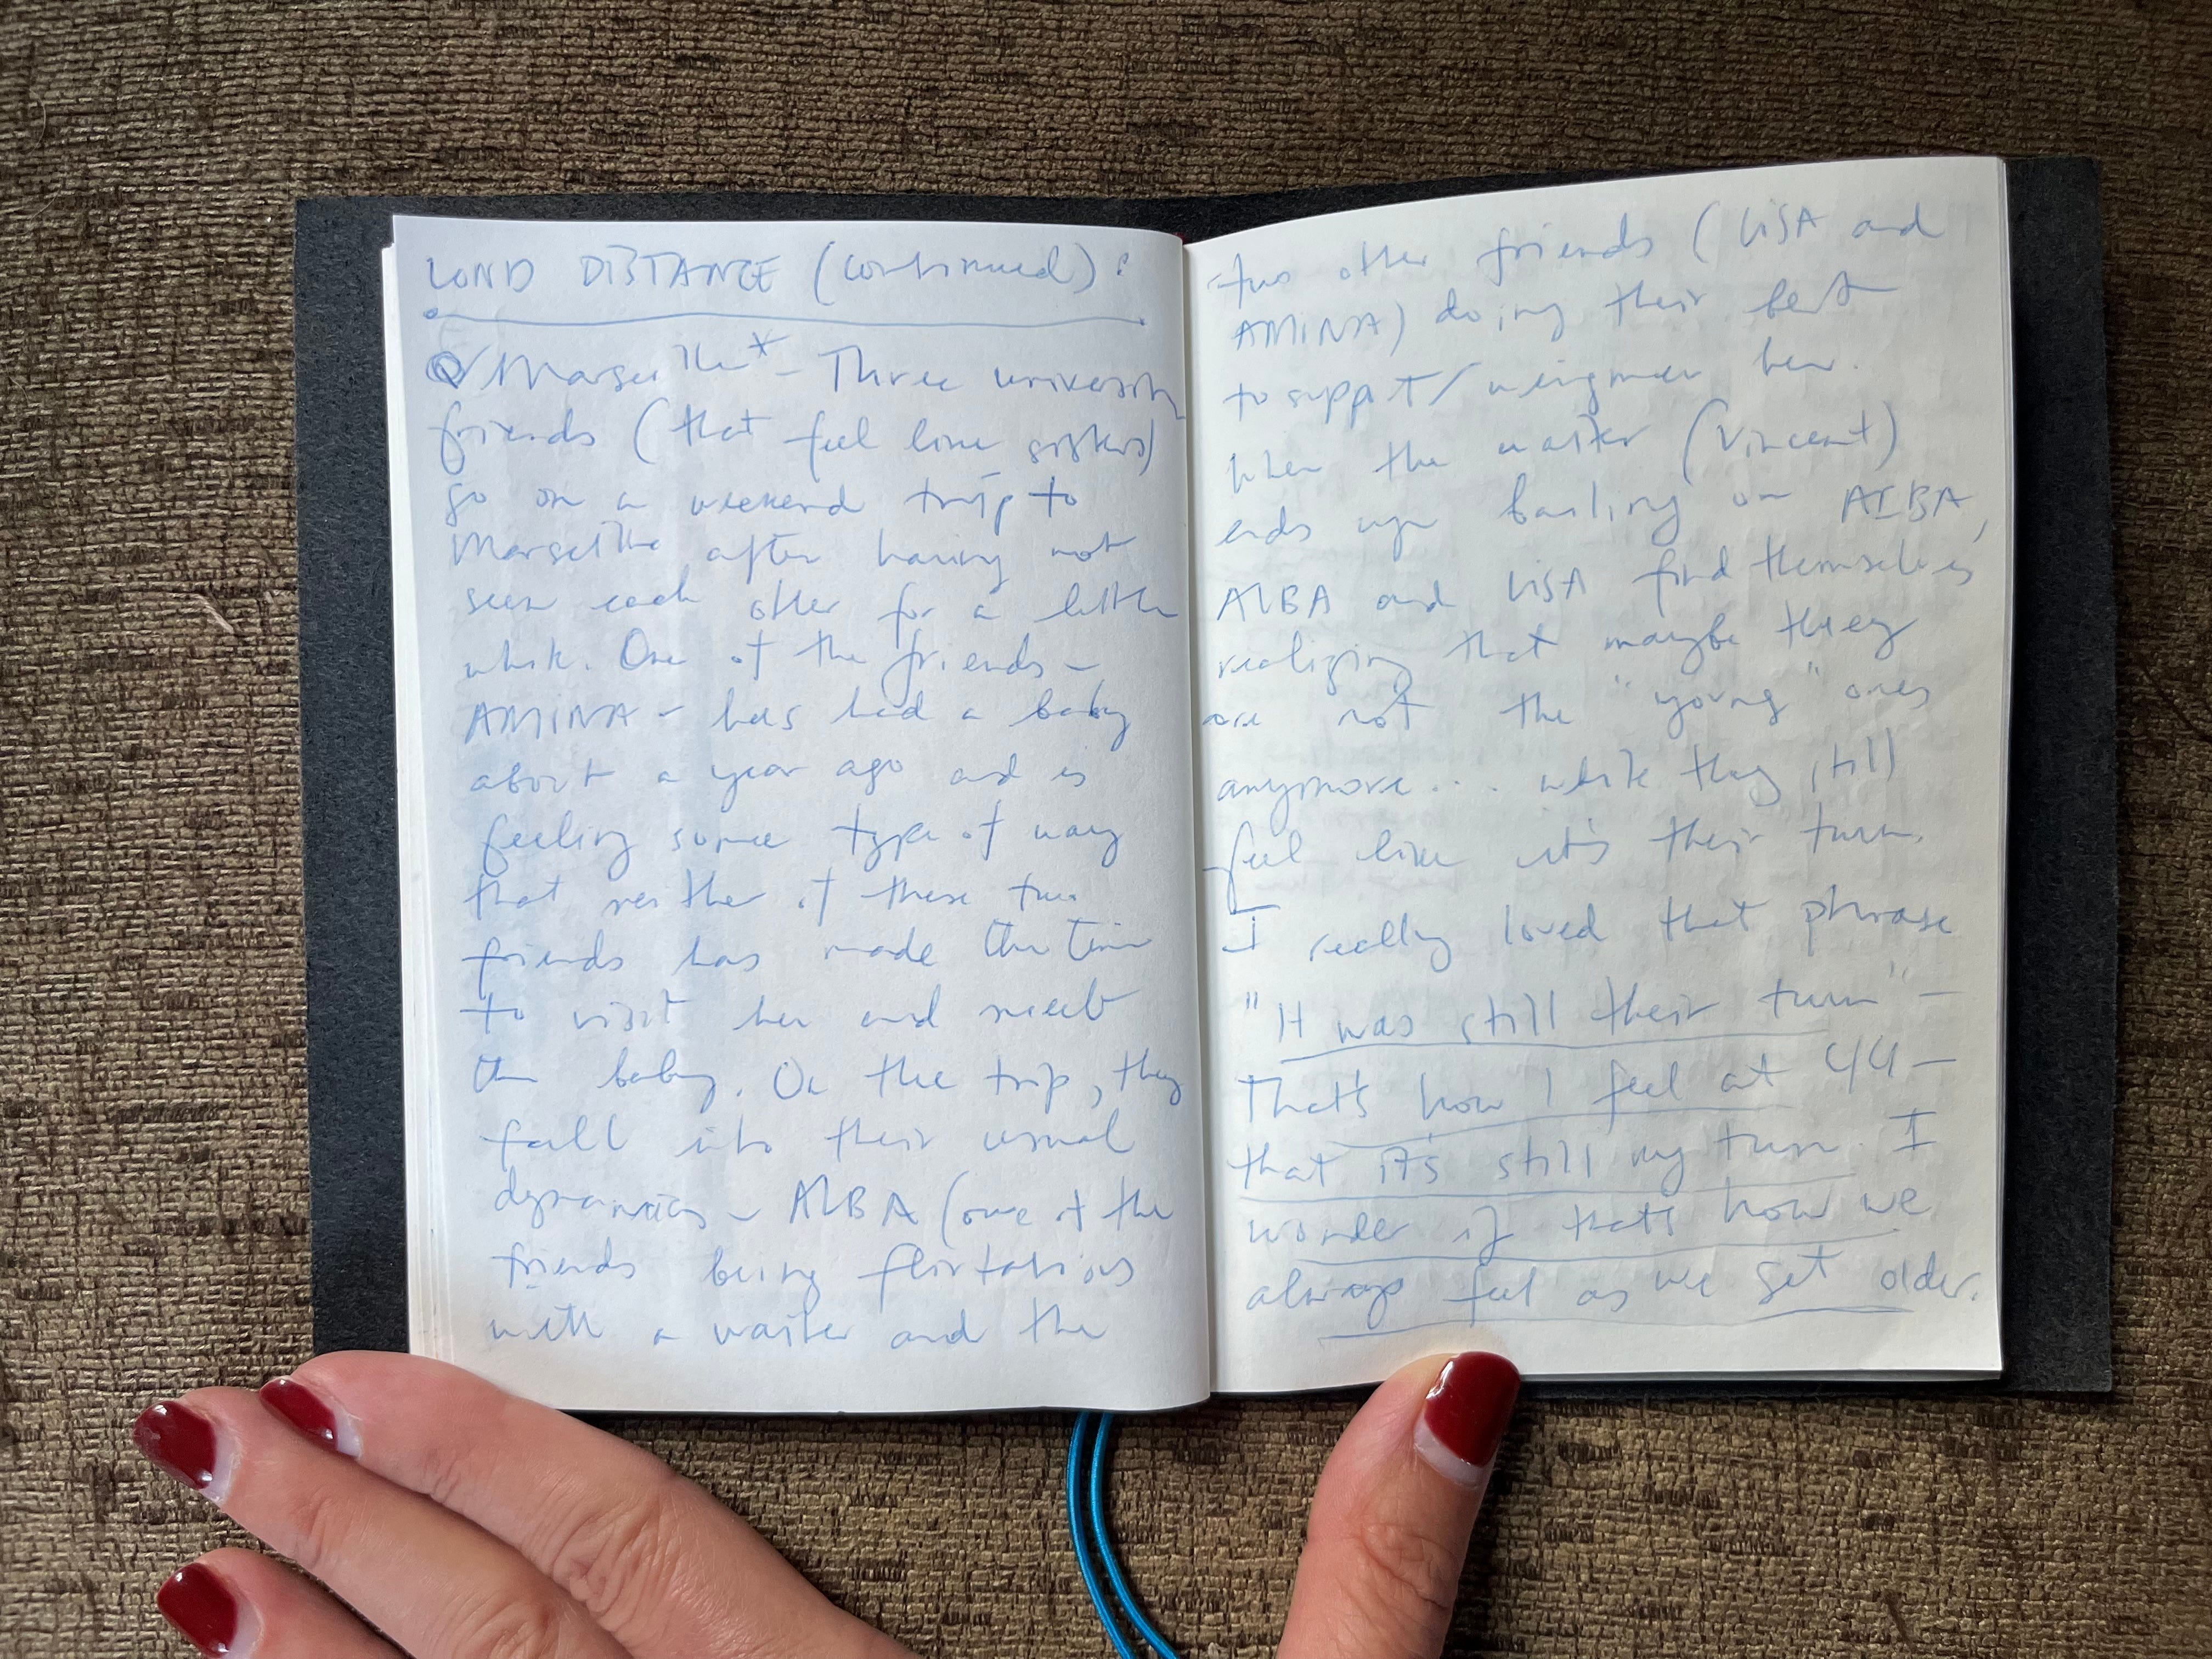 LOND DISTANCE (continued):
Marseille* - Three university
friends (that feel like sisters)
go on a weekend trip to
Marseille after having not
seen each other for a little
while. One of the friends -
AMINA - has had a baby
about a year ago and is
feeling some type of way
that neither of these two
friends has made the time
to visit her and meet
the baby. On the trip, they
fall into their usual
dynamics - ALBA (one of the
friends being flirtatious
with a waiter and the
two other friends (LISA and
AMINA) doing their best
to support/wingman her.
When the waiter (Vincent)
ends up bailing on ALBA,
ALBA and LISA find themselves
realizing that maybe they
are not the "young" ones
anymore... while they still
feel like it's their turn.
I really loved that phrase
"It was still their turn" -
That's how I feel at 44 -
that it's still my turn. I
wonder if that's how we
always feel as we get older.